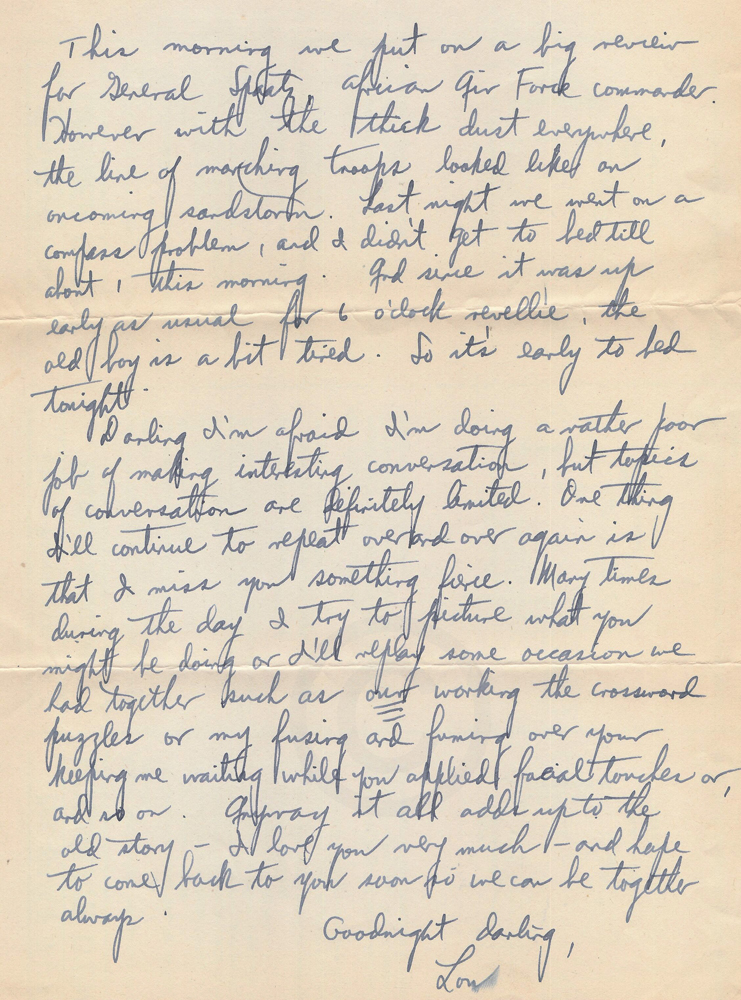 This morning we put on a big review
for General Spaatz, African Air Force commander.
However with the thick dust everywhere,
the line of marching troops looked like an
oncoming sandstorm. Last night we went on a
compass problem, and I didn't get to bed till
about 1 this morning. And since it was up
early as usual for 6 o'clock revellie, the
old boy is a bit tired. So it's early to bed
tonight.
Darling I'm afraid I'm doing a rather poor
job of making interesting conversation, but topics
of conversation are definitely limited. One thing
I'll continue to repeat over and over again is
that I miss you something fierce. Many times
during the day I try to picture what you
might be doing or I'll replay some occasion we
had together such as our working the crossword
puzzles or my fusing and fuming over your
keeping me waiting while you applied facial touches or,
and so on. Anyway it all adds up to the
old story - I love you very much - and hope
to come back to you soon so we can be together
always.
Goodnight darling,
Lou